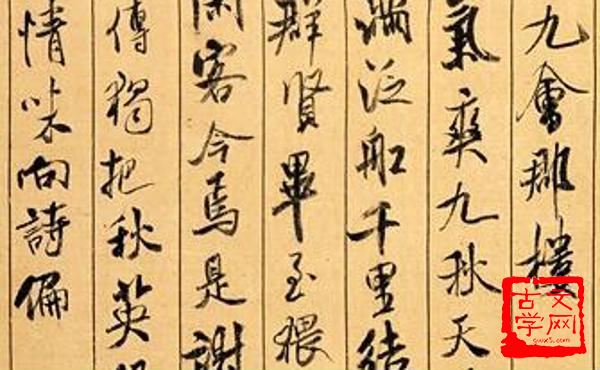 九會郡樓
氣爽九秋天
滿泛船千里結
群賢畢至猥
閑客今焉是謝
傳獨把秋英
情味向詩偏
古文学网